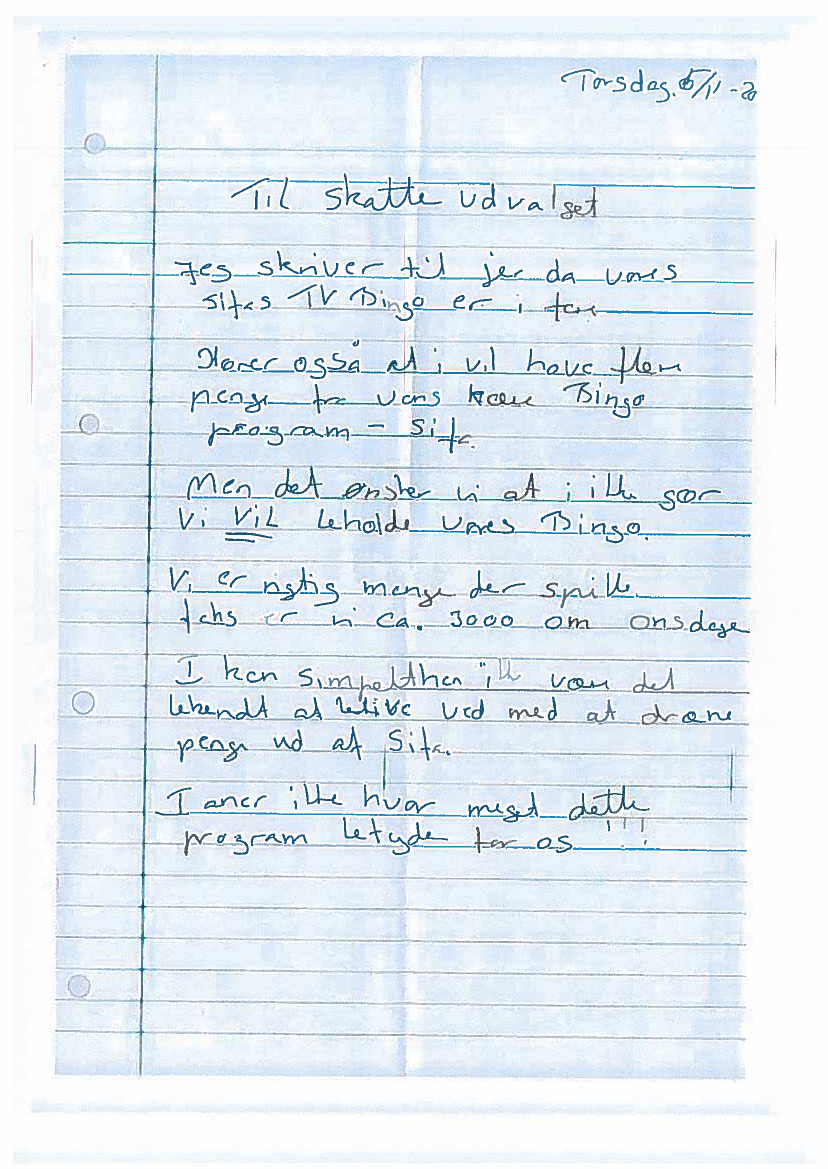 Torsdag. 5/11-20
Til skatte udvalget
Jeg skriver til jer da vores
Sifas TV Bingo er i fare
Hører også at i vil have flere
penge fra vores kære Bingo
program - Sifa.
Men det ønsker vi at i ikke gør
Vi VIL beholde vores Bingo.
Vi er rigtig mange der spille
faks er vi ca. 3000 om onsdage
I kan simpelthen ikk være det
bekendt at blive ved med at dræne
penge ud af Sifa.
I aner ikke hvor meget dette
program betyde for os !!!